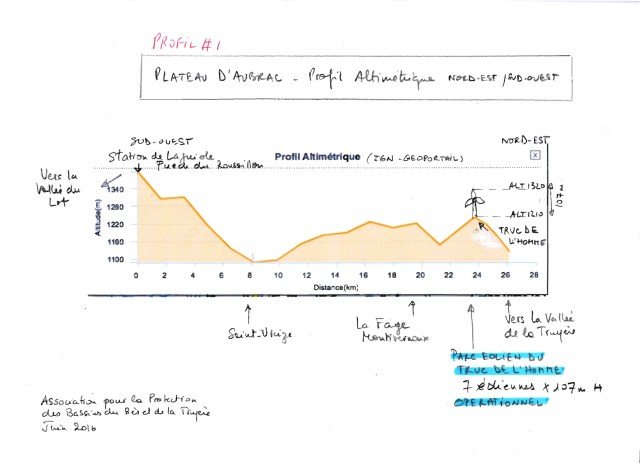 PROFIL #1
PLATEAU D'AUBRAC - Profil Altimétrique NORD-EST / SUD-OUEST
SUD-OUEST
NORD-EST
Station de Laguiole
Puech du Roussillon
Profil Altimétrique (IGN - GEOPORTAIL)
x
Vers la
Vallée du
Lot
Altitude(m)
1340
1280
1220
1160
1100
ALT 1320
107 m
ALT 1210
TRUC DE
L'HOMME
0 2 4 6 8 10 12 14 16 18 20 22 24 26 28
Distance(km)
Saint-Urcize
La Fage
Montivernoux
Vers la Vallée
de la Truyère
PARC EOLIEN DU
TRUC DE L'HOMME
7 éoliennes x 107 m H
OPERATIONNEL
Association pour la Protection
des Bassins du Bès et de la Truyère
Juin 2016